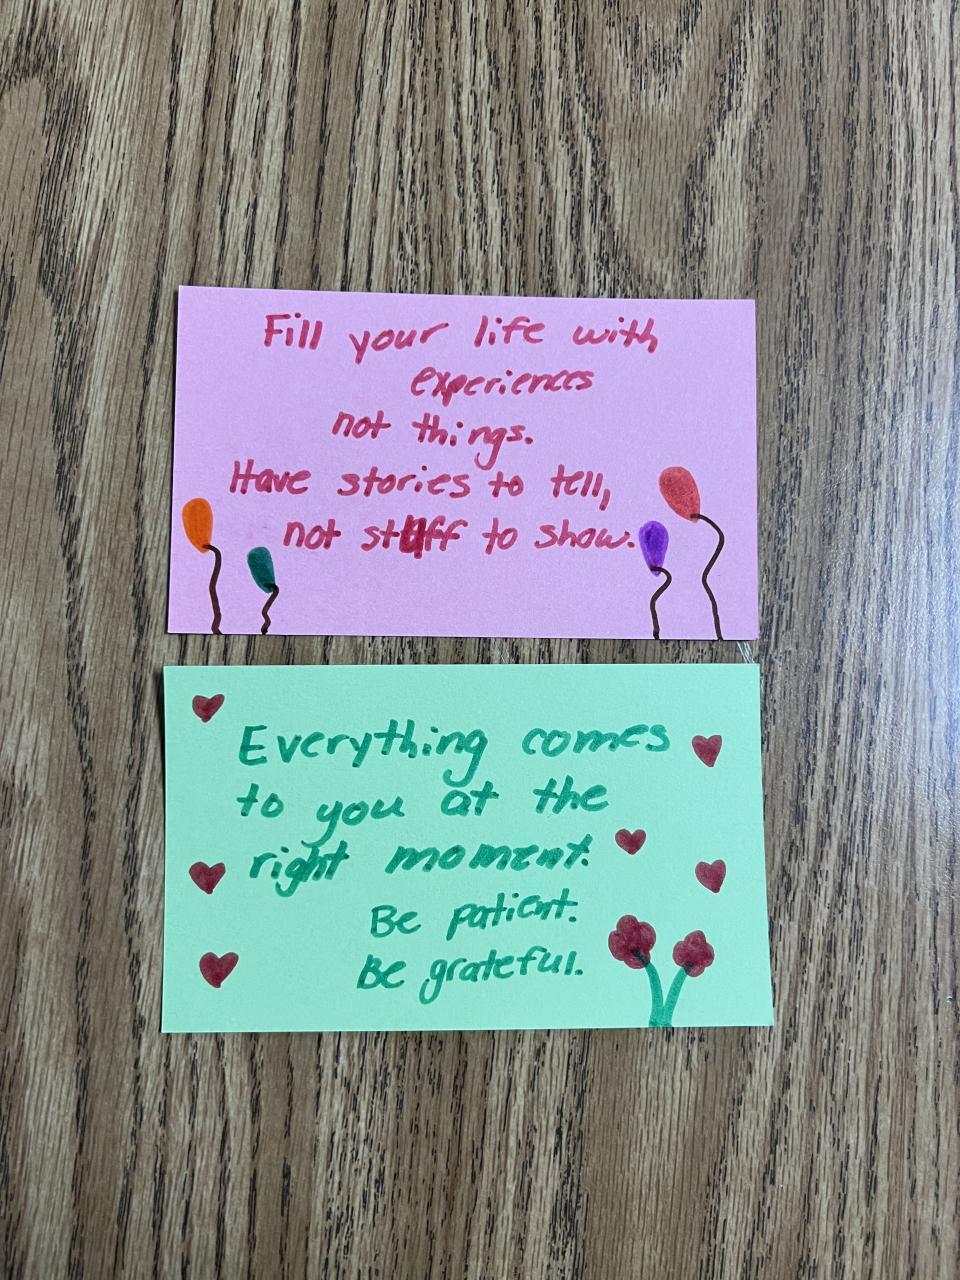 Fill your life with
experiences
not things.
Have stories to tell,
not stuff to show.
Everything comes
to you at the
right moment.
Be patient.
Be grateful.